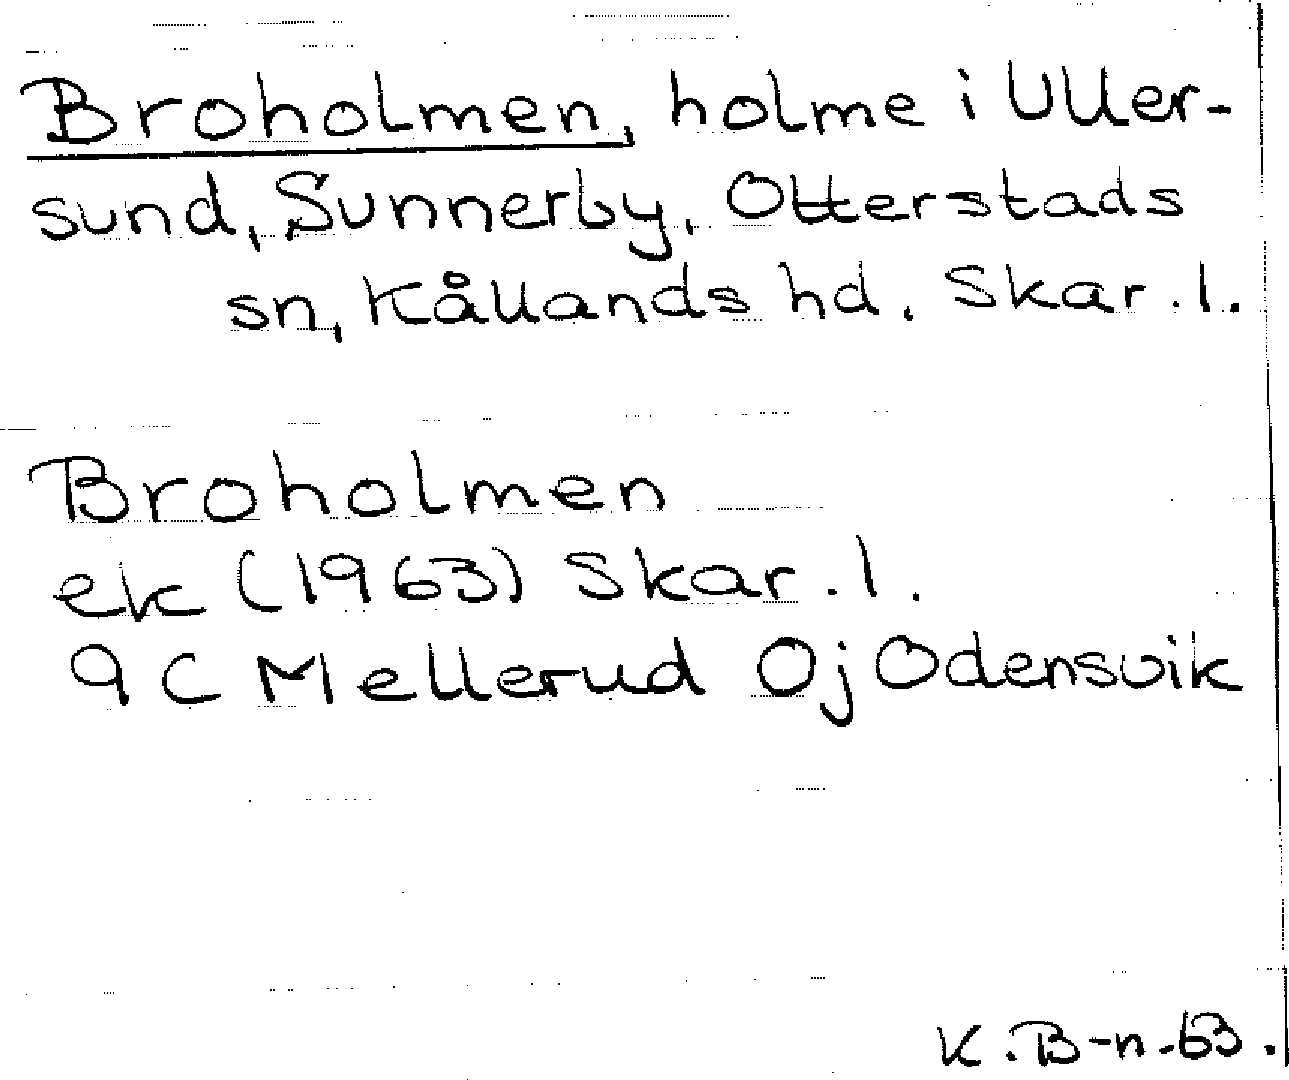 Broholmen, holme i Uller-
sund, Sunnerby, Otterstads
sn, Kållands hd, Skar. l.
Broholmen
ek (1963) Skar. l.
9C Mellerud Oj Odensvik
K. B-n. 63.